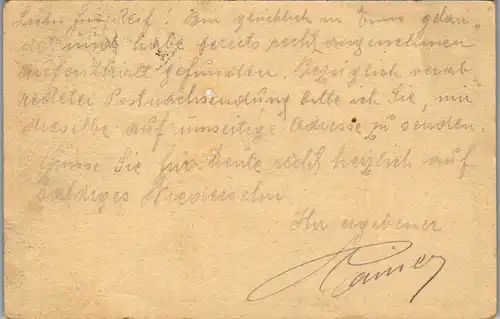 Lieber Frl. Reif! Bin glücklich in Enns gelan-
det und habe bereits recht angenehmen
Aufenthalt gefunden. Bezüglich verab-
redeter Postnachsendung bitte ich Sie, mir
dieselbe auf umseitige Adresse zu senden.
Grüsse Sie für heute recht herzlich auf
baldiges Wiedersehn
Ihr ergebener